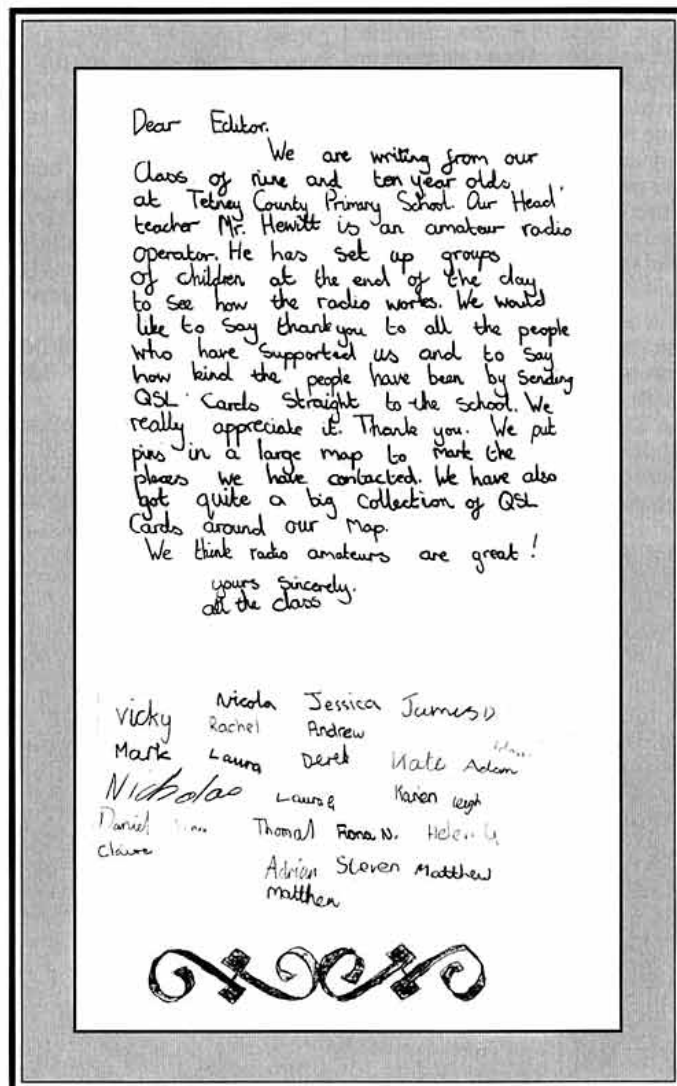 Dear Editor.
We are writing from our
Class of nine and ten year olds
at Tetney County Primary School. Our Head
teacher Mr. Hewitt is an amateur radio
operator. He has set up groups
of children at the end of the day
to see how the radio works. We would
like to say thankyou to all the people
who have supported us and to say
how kind the people have been by sending
QSL Cards straight to the school. We
really appreciate it. Thank you. We put
pins in a large map to mark the
places we have contacted. We have also
got quite a big collection of QSL
Cards around our map.
We think radio amateurs are great!
yours sincerely.
all the class
Vicky Nicola Jessica James D
Rachel Andrew
Mark Laura Derek Kate Adam
Nicholas Laura Karen Leigh
Daniel Thomas Fiona N. Helen G
Claire
Adrian Steven Matthew
Matthew